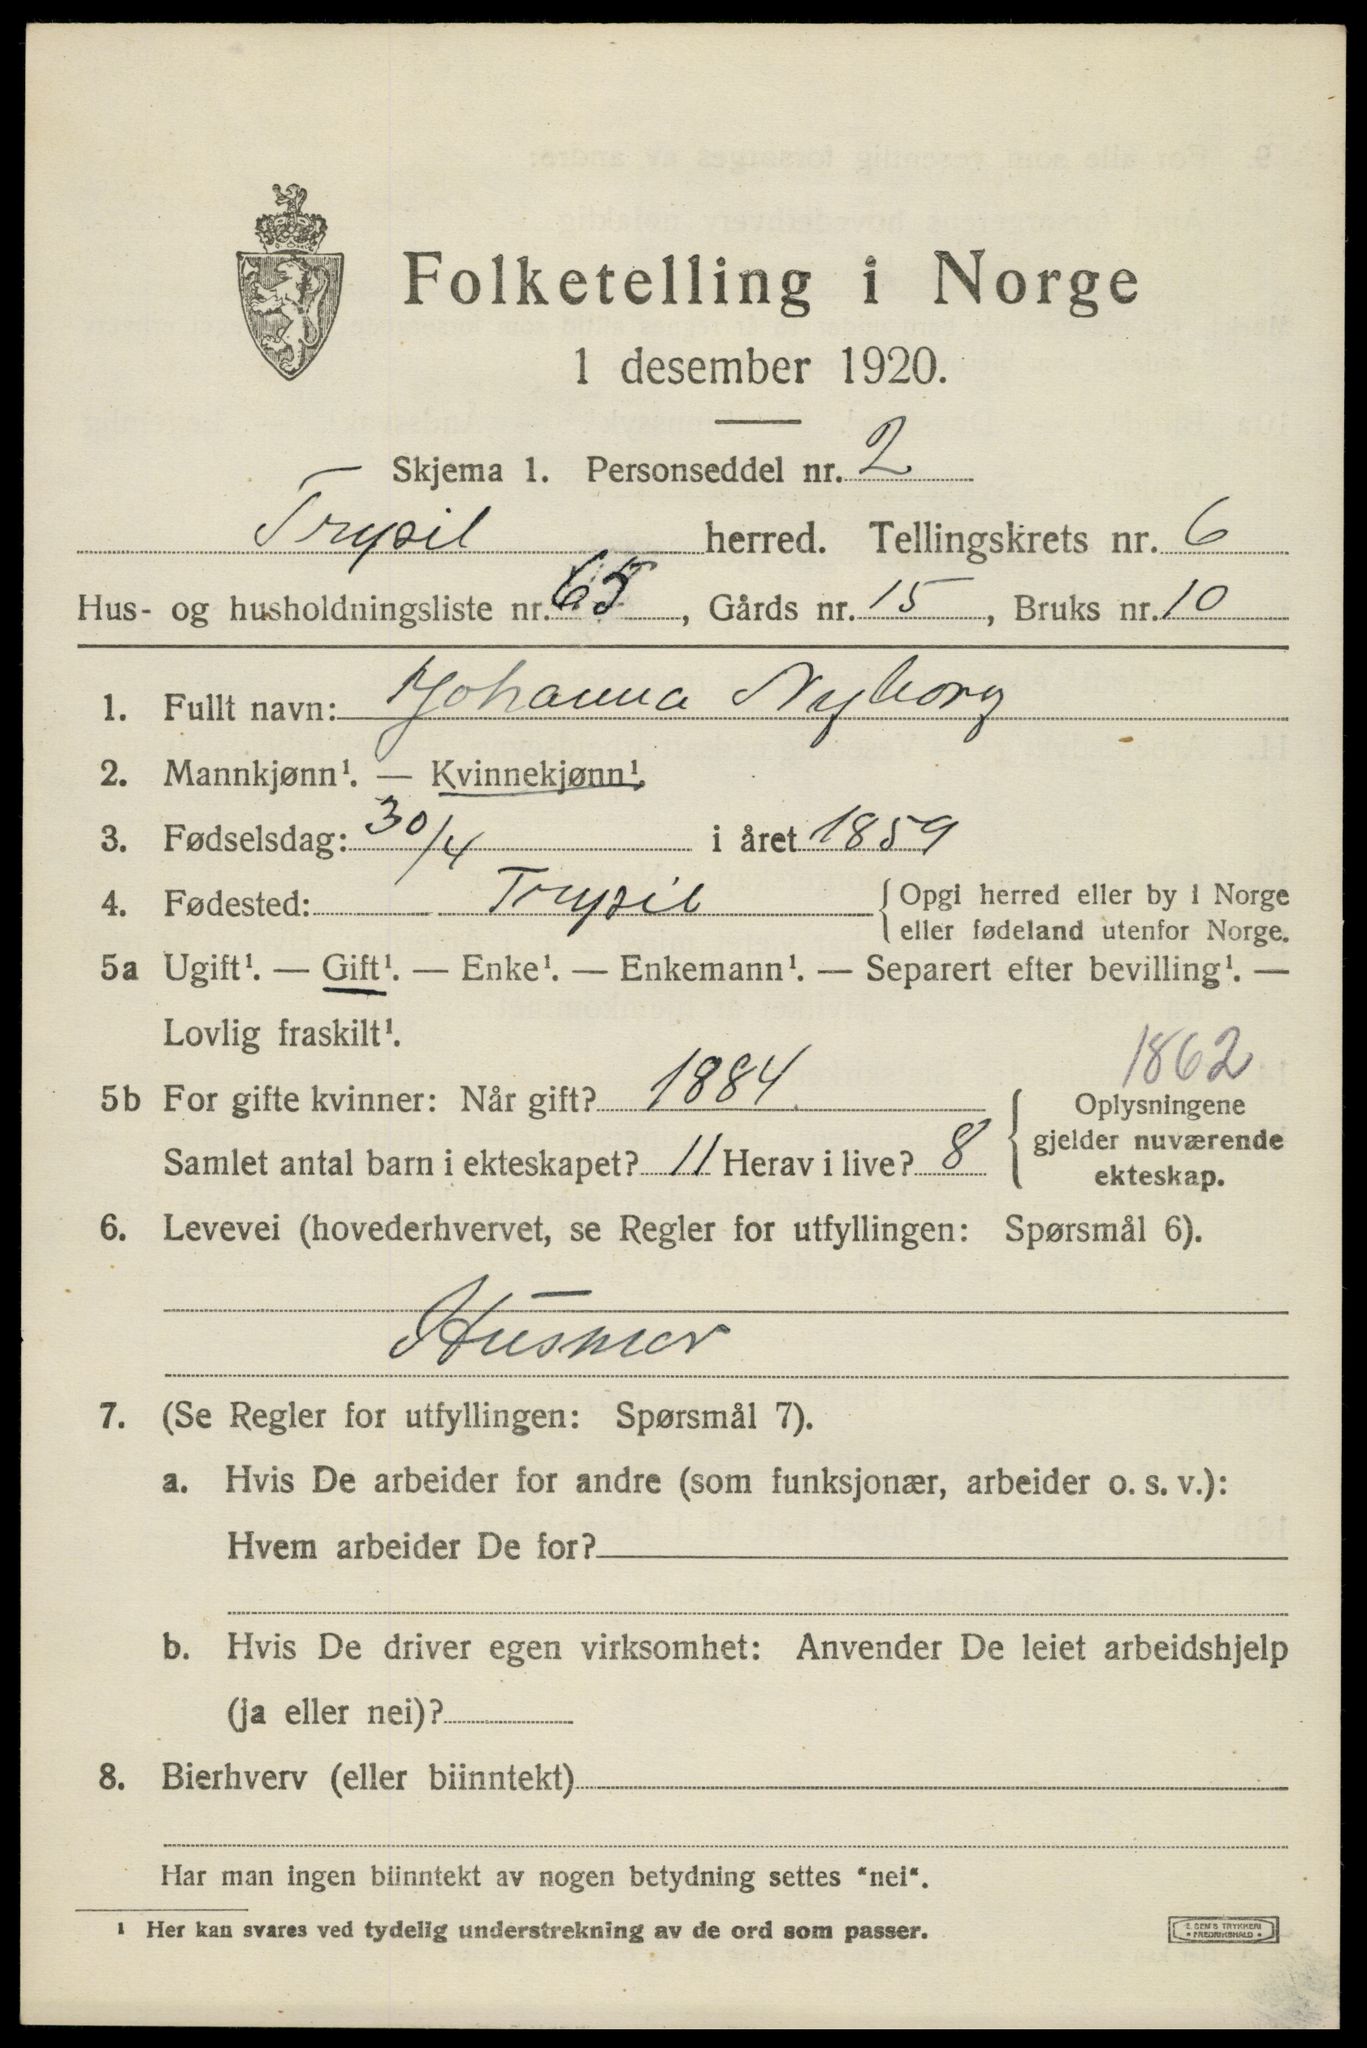 Folketelling i Norge
1 desember 1920.
Skjema 1. Personseddel nr. 2
Trysil herred. Tellingskrets nr. 6
Hus- og husholdningsliste nr. 65, Gårds nr. 15, Bruks nr. 10
1. Fullt navn: Johanna Nyborg
2. Mannkjønn¹. — Kvinnekjønn¹.
3. Fødselsdag: 30/4 i året 1859
4. Fødested: Trysil {Opgi herred eller by i Norge
eller fødeland utenfor Norge.
5a Ugift¹. — Gift¹. — Enke¹. — Enkemann¹. — Separert efter bevilling¹. —
Lovlig fraskilt¹.
1862
5b For gifte kvinner: Når gift? 1884. {Oplysningene
gjelder nuværende
Samlet antal barn i ekteskapet? 11 Herav i live? 8
ekteskap.
6. Levevei (hovederhvervet, se Regler for utfyllingen: Spørsmål 6).
Husmor
7. (Se Regler for utfyllingen: Spørsmål 7).
a. Hvis De arbeider for andre (som funksjonær, arbeider o. s. v.):
Hvem arbeider De for?
b. Hvis De driver egen virksomhet: Anvender De leiet arbeidshjelp
(ja eller nei)?
8. Bierhverv (eller biinntekt)
Har man ingen biinntekt av nogen betydning settes "nei".
¹ Her kan svares ved tydelig understrekning av de ord som passer.
E. SEM'S TRYKKERI
FREDRIKSHALD